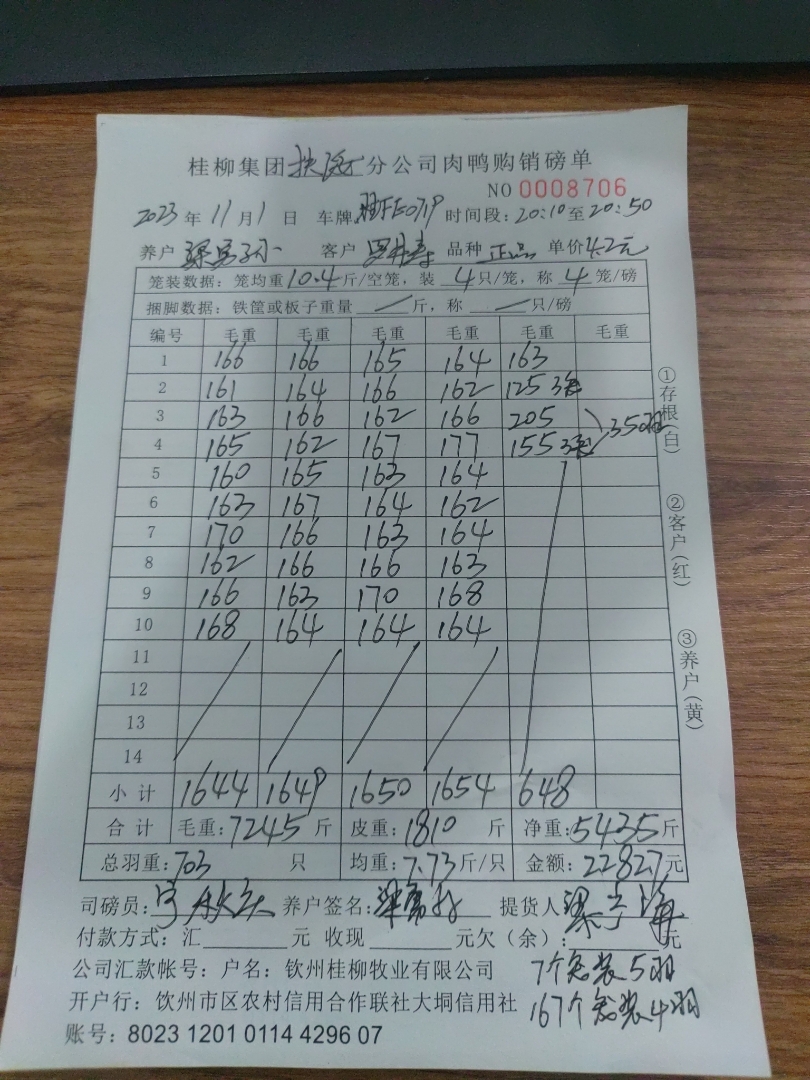 桂柳集团 分公司肉鸭购销磅单
NO 0008706
2023 年 11 月 1 日 车牌 时间段：20:10 至 20:50
养户 客户 品种 正品 单价 4.2元
笼装数据：笼均重 10.4 斤/空笼，装 4 只/笼，称 4 笼/磅
捆脚数据：铁筐或板子重量 斤，称 只/磅
编号 毛重 毛重 毛重 毛重 毛重 毛重
1 166 166 165 164 163
2 161 164 166 162 125 3笼
3 163 166 162 166 205
4 165 162 167 177 155 3笼 350羽
5 160 165 163 164
6 163 167 164 162
7 170 166 163 164
8 162 166 166 163
9 166 163 170 168
10 168 164 164 164
11
12
13
14
小计 1644 1649 1650 1654 648
合计 毛重：7245 斤 皮重：1810 斤 净重：5435 斤
总羽重：703 只 均重：7.73 斤/只 金额：22827 元
司磅员： 养户签名： 提货人
付款方式：汇 元 收现 元欠（余）： 元
公司汇款帐号：户名：钦州桂柳牧业有限公司
7个笼装5羽
开户行：钦州市区农村信用合作联社大垌信用社
167个笼装4羽
账号：8023 1201 0114 4296 07
①存根（白）
②客户（红）
③养户（黄）